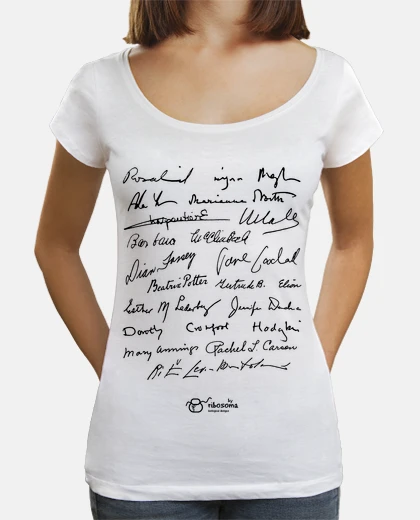 Rosalind
Marianne North
Barbara McClintock
Dian Fossey Jane Goodall
Beatrix Potter Gertrude B. Elion
Esther M Lederberg Jennifer Doudna
Dorothy Crowfoot Hodgkin
Mary Anning Rachel L. Carson
Rita Levi-Montalcini
by
ribosoma